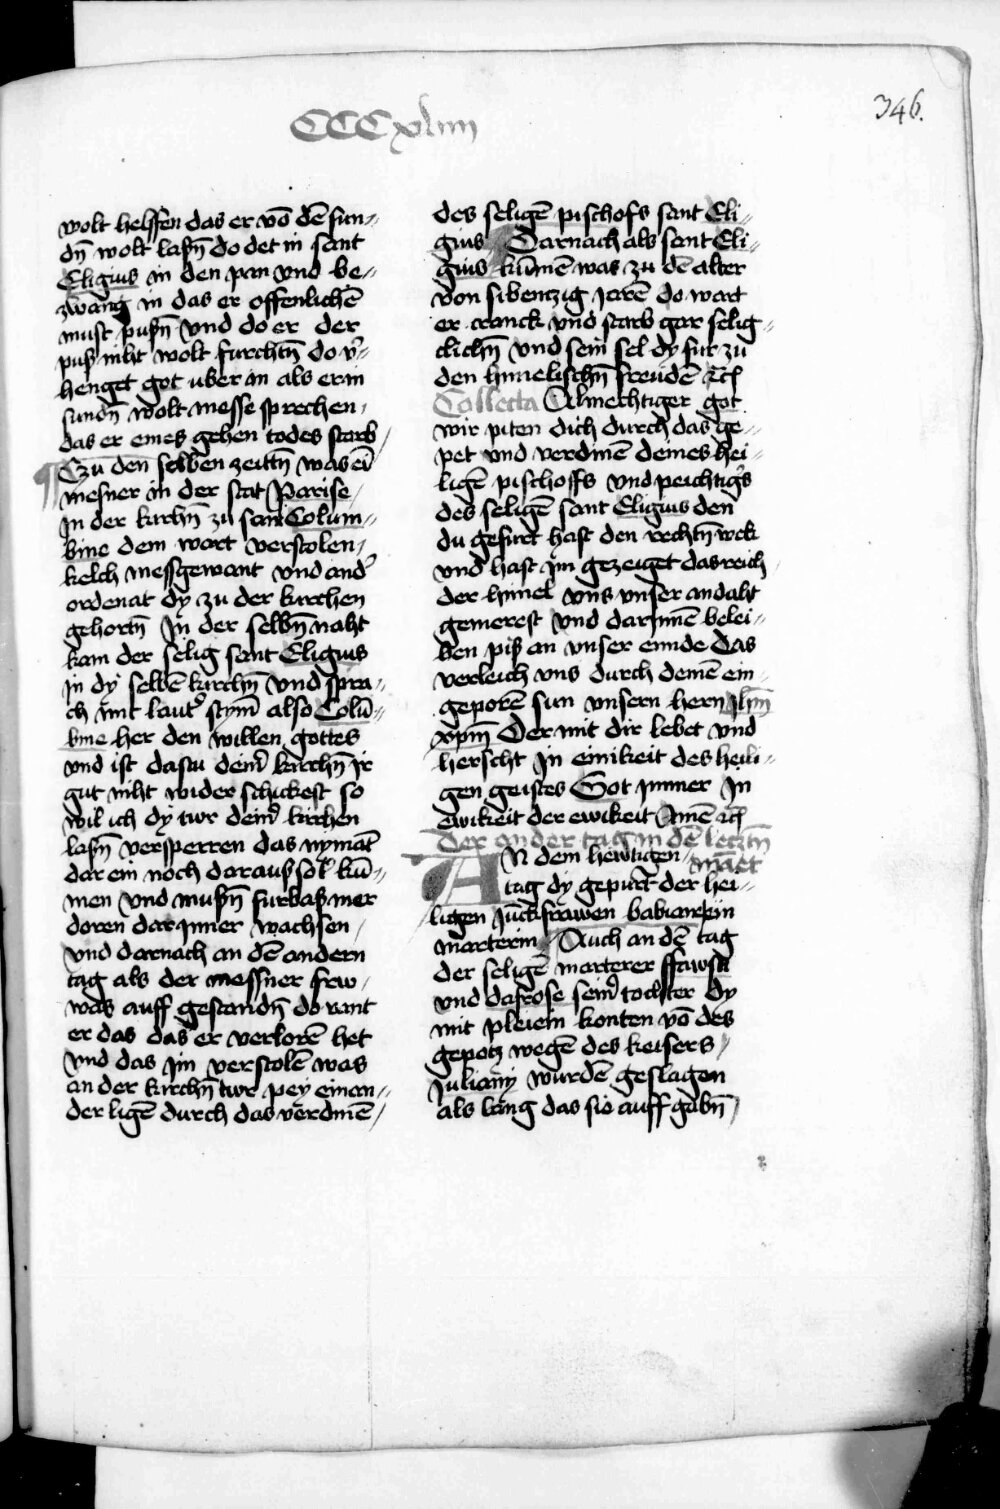 CCCxliiii
346.
wolt helffen das er vō dē sun⸗
dn̄ wolt lasn̄ do det in sant
Eligius in den pan vnd be⸗
zwang in das er offenlichē
must pußn̄ vnd do er der
puß niht wolt furchtn̄ do v̓⸗
henget got uber in als er in
sundn̄ wolt messe sprechen
das er eines gehen todes starb
Czu den selben zeittn̄ was eī
mesner in der stat Parise
Jn der kirchn̄ zu sant Colum⸗
bine dem wart verstolen
kelch messgewant vnd and̓
ordenat dy zu der kirchen
gehortn̄ Jn der selbn̄ naht
kam der selig sant Eligius
in dy selbē kirchn̄ vnd spra⸗
ch mit laut̓ stym̄ also Colū⸗
bine her den willen gottes
vnd ist dastu dein̓ kirchn̄ ir
gut niht wider schickest so
wil ich dy tur dein̓ kirchen
lasn̄ versperren das nymāt
dar ein noch darauß sol kū⸗
men vnd mußn̄ furbaß mer
doren dar inner wachsen
vnd darnach an dē andern
tag als der messner frw
was auff gestandn̄ do vant
er das das er verlorē het
vnd das im verstolē was
an der kirchn̄ tur pey einan⸗
der ligē durch das verdinē
des seligē pischofs sant Eli⸗
gius Darnach als sant Eli⸗
gius kūmen was zu dē alter
von sibentzig jarē do wart
er cranck vnd starb gar selig⸗
clichn̄ vnd sein sel dy fur zu
den himelischn̄ freudē ⁊cꝭ
Collecta Almechtiger got
wir piten dich durch das ge⸗
pet vnd verdinē deines hei⸗
ligē pischoffs vnd peichtig̓s
des seligē sant Eligius den
du gefurt hast den rechtn̄ wek
vnd hast im gezeiget das reich
der himel vns vnser andaht
gemerest vnd darinnē belei⸗
ben piß an vnser ennde das
verleich vns durch deinē ein⸗
geporē sun vnsern hern ih̄m
xp̄m Der mit dir lebet vnd
herscht in einikeit des heili⸗
gen geistes Got immer in
ewikeit der ewikeit Amē ⁊cꝭ
Der ander tag in dē letztn̄
manet
AN dem hewtigen
tag dy gepurt der hei⸗
ligen jūckfrawen babiane ein
marterin Auch an dē tag
der seligē marterer ffawsti
vnd dafrose sein̓ tochter dy
mit pleiein konten vō des
gepotz wegē des keisers
Juliany wurdē geslagen
als lang das sie auff gabn̄